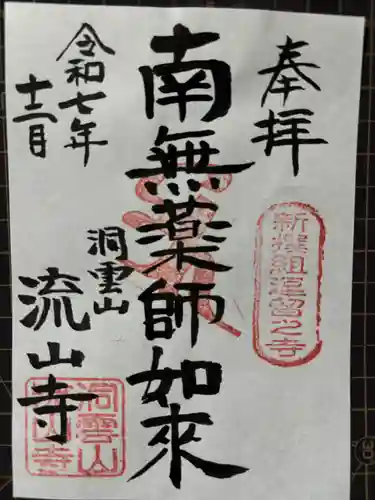 奉拝
新撰組屯留之寺
南無薬師如來
洞雲山
流山寺
洞雲山
流山寺
令和七年
十二月